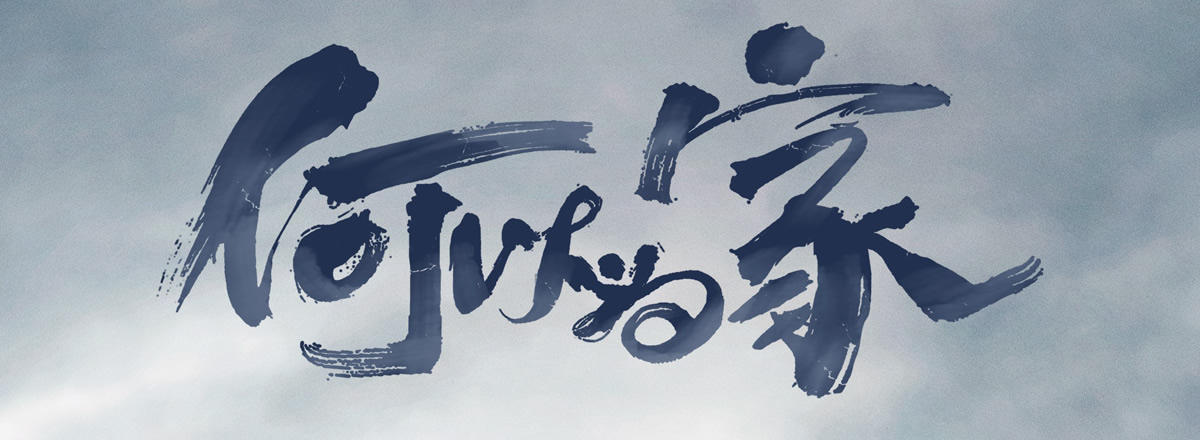 何以为家